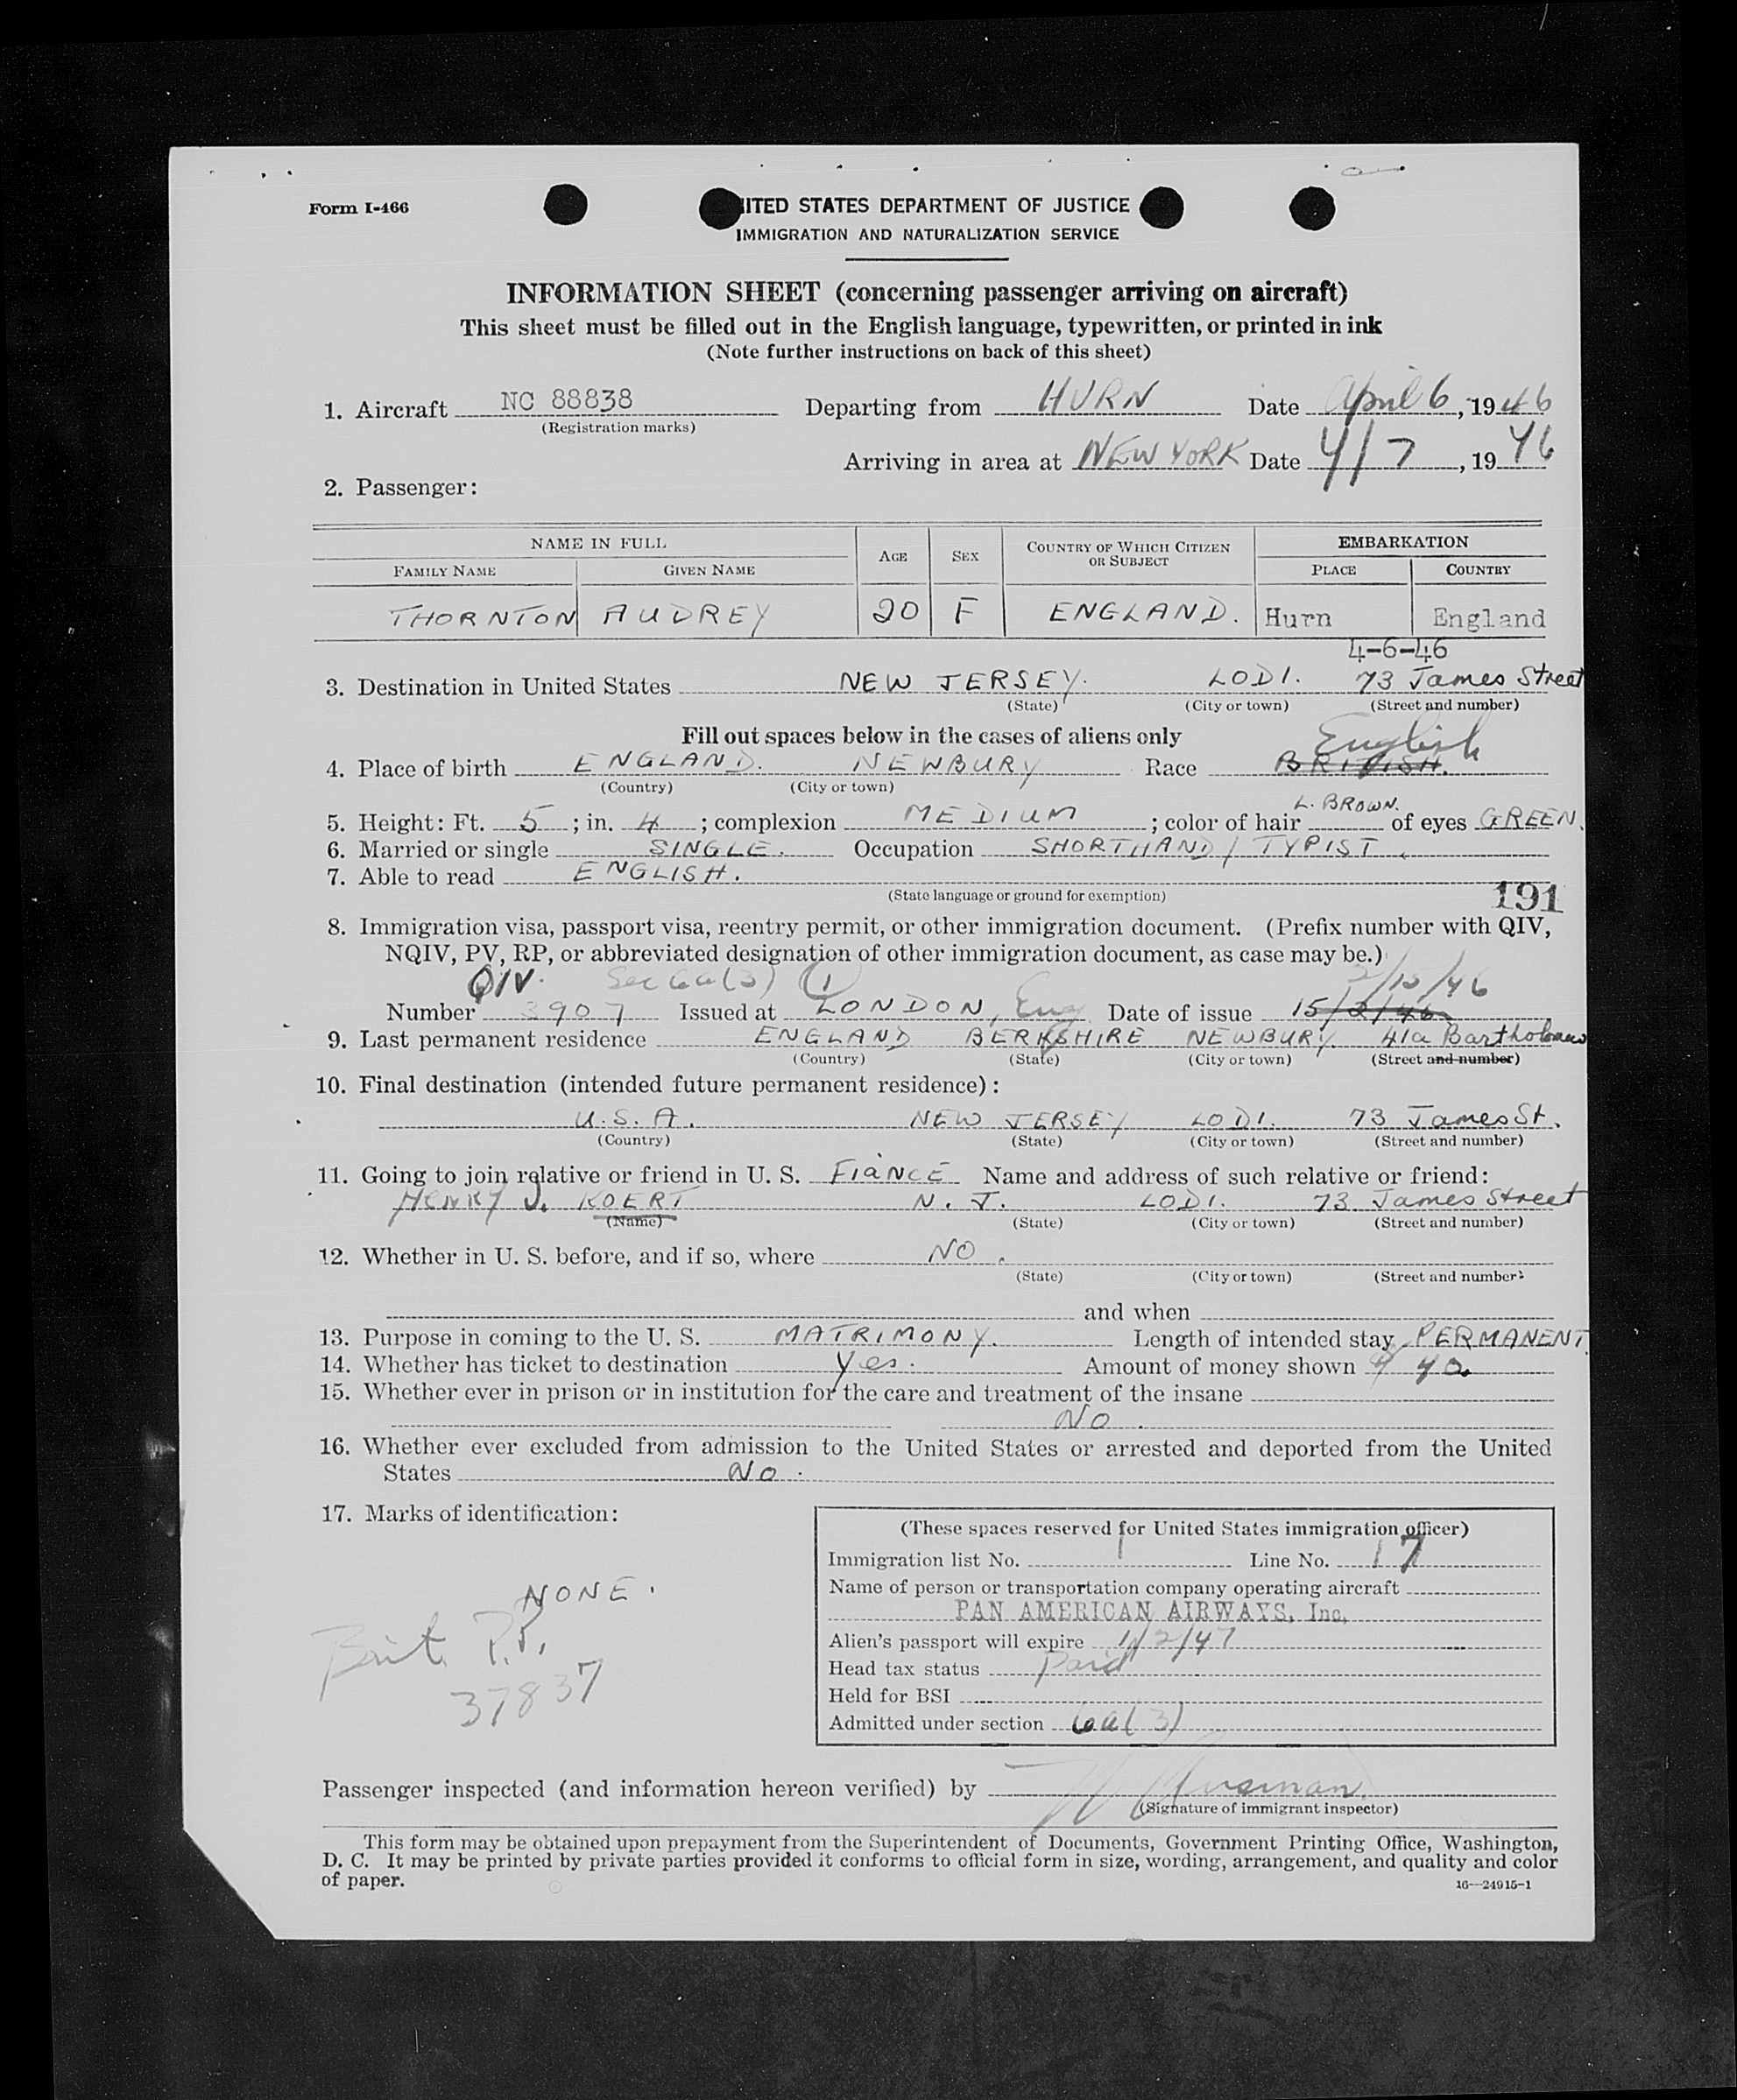 Form I-466
ITED STATES DEPARTMENT OF JUSTICE
IMMIGRATION AND NATURALIZATION SERVICE
INFORMATION SHEET (concerning passenger arriving on aircraft)
This sheet must be filled out in the English language, typewritten, or printed in ink
(Note further instructions on back of this sheet)
1. Aircraft NC 88838 Departing from HURN Date April 6, 1946
(Registration marks)
Arriving in area at NEW YORK Date 4/7, 1946
2. Passenger:
NAME IN FULL AGE SEX COUNTRY OF WHICH CITIZEN OR SUBJECT EMBARKATION
FAMILY NAME GIVEN NAME PLACE COUNTRY
THORNTON AUDREY 20 F ENGLAND. Hurn England
4-6-46
3. Destination in United States NEW JERSEY. LODI. 73 James Street
(State) (City or town) (Street and number)
Fill out spaces below in the cases of aliens only
English
4. Place of birth ENGLAND. NEWBURY Race BRITISH.
(Country) (City or town)
L. BROWN.
5. Height: Ft. 5; in. 4; complexion MEDIUM; color of hair of eyes GREEN.
6. Married or single SINGLE. Occupation SHORTHAND / TYPIST.
7. Able to read ENGLISH.
(State language or ground for exemption) 191
8. Immigration visa, passport visa, reentry permit, or other immigration document. (Prefix number with QIV,
NQIV, PV, RP, or abbreviated designation of other immigration document, as case may be.)
QIV. Sec 6a(3) (1) 2/15/46
Number 3907 Issued at LONDON, Eng Date of issue 15/2/46
9. Last permanent residence ENGLAND BERKSHIRE NEWBURY. 41a Bartholomew
(Country) (State) (City or town) (Street and number)
10. Final destination (intended future permanent residence):
U.S.A. NEW JERSEY LODI. 73 James St.
(Country) (State) (City or town) (Street and number)
11. Going to join relative or friend in U. S. FIANCÉ Name and address of such relative or friend:
HENRY J. KOERT N. J. LODI. 73 James Street
(Name) (State) (City or town) (Street and number)
12. Whether in U. S. before, and if so, where NO.
(State) (City or town) (Street and number)
and when
13. Purpose in coming to the U. S. MATRIMONY. Length of intended stay PERMANENT.
14. Whether has ticket to destination Yes. Amount of money shown $ 40
15. Whether ever in prison or in institution for the care and treatment of the insane
No.
16. Whether ever excluded from admission to the United States or arrested and deported from the United
States No.
17. Marks of identification:
NONE.
Brit. P.P.
37837
(These spaces reserved for United States immigration officer)
Immigration list No. 1 Line No. 17
Name of person or transportation company operating aircraft
PAN AMERICAN AIRWAYS, Inc.
Alien's passport will expire 1/2/47
Head tax status Paid
Held for BSI
Admitted under section 6a(3)
Passenger inspected (and information hereon verified) by
(Signature of immigrant inspector)
This form may be obtained upon prepayment from the Superintendent of Documents, Government Printing Office, Washington,
D. C. It may be printed by private parties provided it conforms to official form in size, wording, arrangement, and quality and color
of paper. 16—24915-1